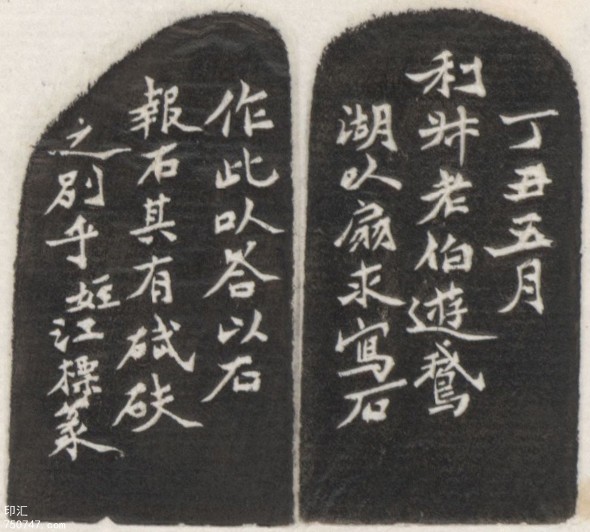 丁丑五月
利老伯遊鵝
湖㕥扇求寫石
作此㕥答以石
報石其有碔砆
之別乎姪江標篆
印汇
750747.com